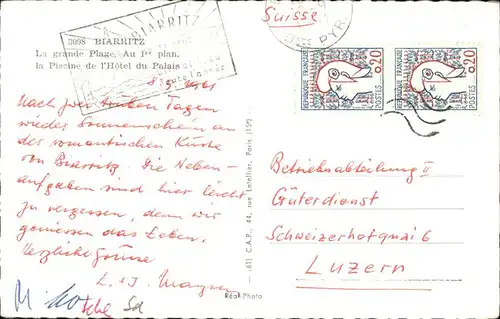 3098 BIARRITZ
La grande Plage. Au 1er plan,
la Piscine de l'Hôtel du Palais
BIARRITZ
Suisse
REPUBLIQUE FRANÇAISE
0,20
POSTES
REPUBLIQUE FRANÇAISE
0,20
POSTES
8.5.1961
Nach zwei trüben Tagen
wieder Sonnenschein an
der romantischen Küste
von Biarritz. Die Neben-
aufgaben sind hier leicht
zu vergessen, denn wir
geniessen das Leben.
Herzliche Grüsse
Réal-Photo
— 611 C.A.P., 44, rue Letellier, Paris (15e)
Betriebsabteilung II
Güterdienst
Schweizerhofquai 6
Luzern